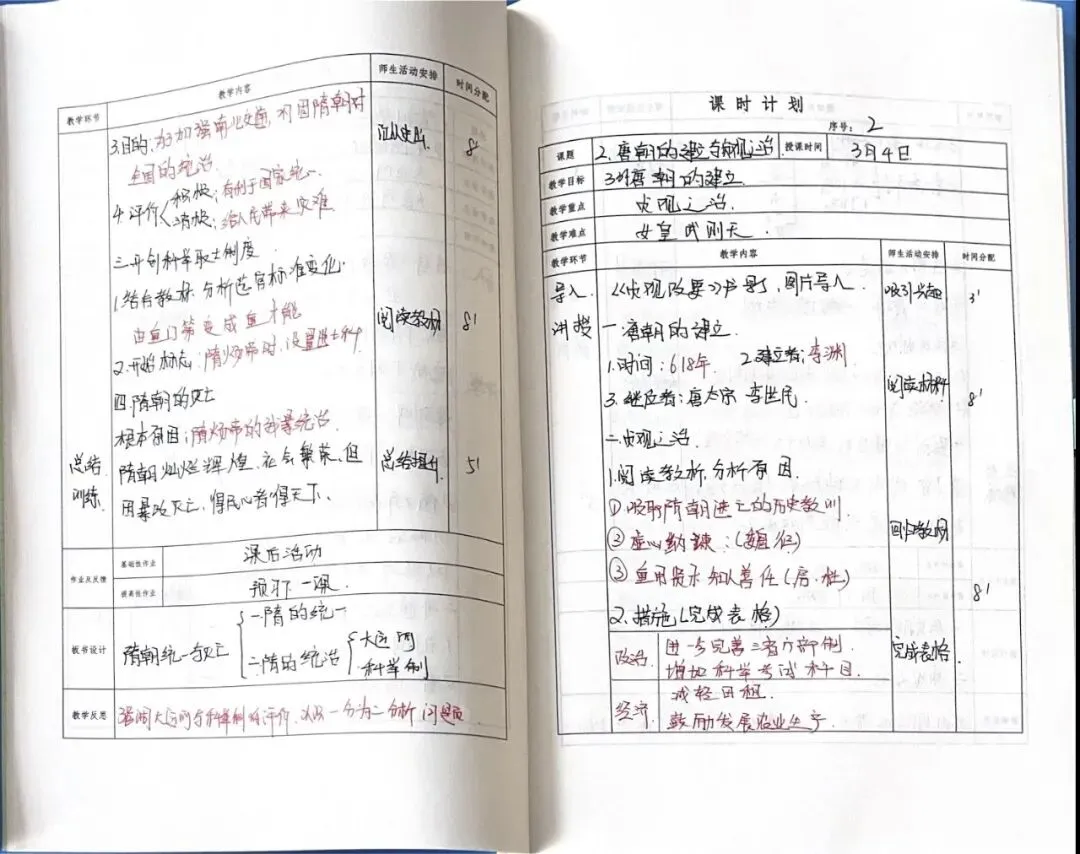 教学环节 教学内容 师生活动安排 时间分配
3.目的:为加强南北交通,巩固隋朝对 8'
全国的统治.
4.评价 积极:有利于国家统一.
消极:给人民带来灾难
三.开创科举取士制度
1.结合教材.分析选官标准变化. 阅读教材 8'
由重门第变成重才能
2.开始标志:隋炀帝时,设置进士科
四.隋朝的灭亡
根本原因:隋炀帝的残暴统治.
总结训练. 隋朝灿烂辉煌.社会繁荣.但 总结提升 5'
因暴政灭亡,得民心者得天下.
作业及反馈 基础性作业 课后活动
提高性作业 预习下一课.
板书设计 隋朝统一与灭亡 一.隋的统一
二.隋的统治 大运河
科举制
教学反思 强调大运河与科举制的评价. 一分为二分析问题
课时计划
序号:2
课题 2.唐朝的建立与贞观之治. 授课时间 3月4日
教学目标 唐朝的建立.
教学重点 贞观之治.
教学难点 女皇武则天.
教学环节 教学内容 师生活动安排 时间分配
导入. 《贞观政要》书影,图片导入. 吸引兴趣 3'
讲授 一.唐朝的建立.
1.时间:618年. 2.建立者:李渊
3.继位者:唐太宗 李世民. 阅读材料 8'
二.贞观之治.
1.阅读教材.分析原因
①吸取隋朝速亡的历史教训.
②虚心纳谏:(魏征) 回归教材
③重用贤才 知人善任(房.杜) 8'
2.措施(完成表格)
政治. 进一步完善三省六部制. 完成表格.
增加科举考试科目.
经济. 减轻田租.
鼓励发展农业生产